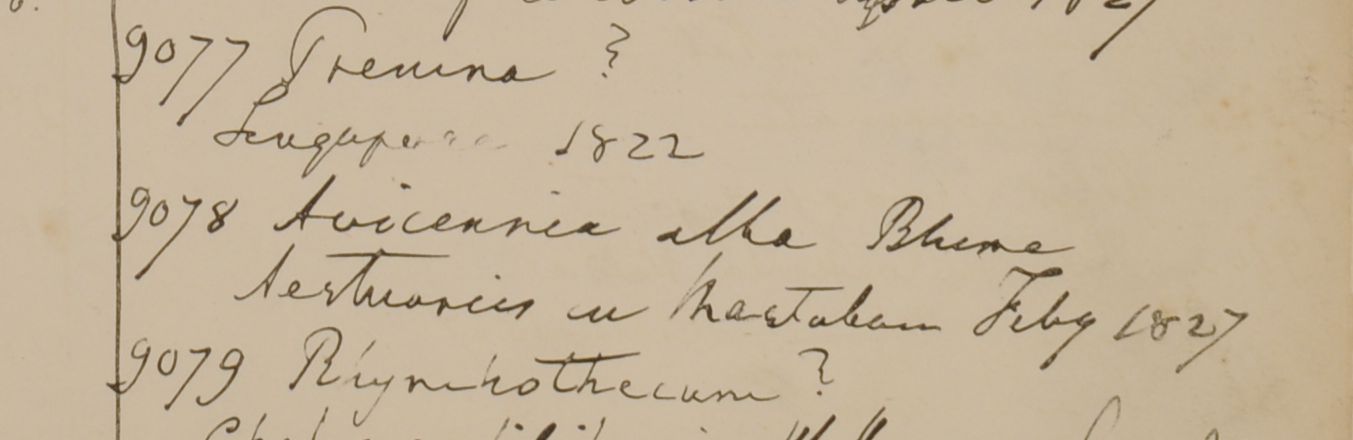 1827
9077 Premna ?
Singapore 1822
9078 Avicennia alba Blume
Aestuariis in Martaban Feby 1827
9079 Rhynchothecum ?